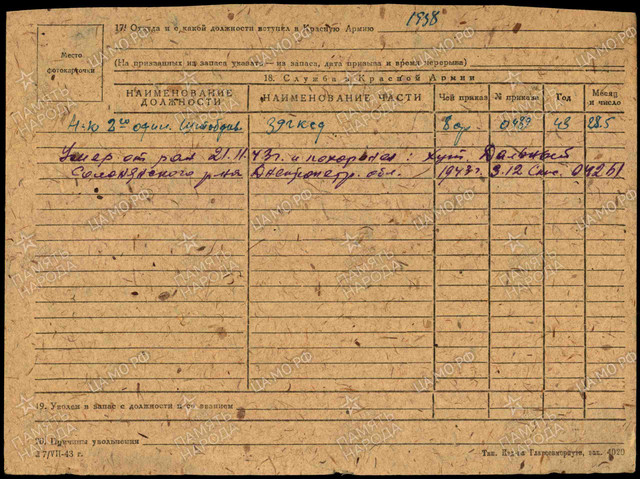 17. Откуда и с какой должности вступил в Красную Армию 1938
Место фотокарточки
(На призванных из запаса указать — из запаса, дата призыва и время перерыва)
18. Служба в Красной Армии
НАИМЕНОВАНИЕ ДОЛЖНОСТИ НАИМЕНОВАНИЕ ЧАСТИ Чей приказ № приказа Год Месяц и число
Н-к 2го отдел. Штадив. 39гксд 8 ар. 0489 43 28.5
Умер от ран 21.11.43г. и похоронен: хут. Дальный
Солонянского р-на Днепропетр. обл. 1943г. 3.12 Спис. 04261
19. Уволен в запас с должности и со званием
20. Причины увольнения
27/VII-43 г.
Тип. Изд-ва Главсевморпути, зак. 4020
ЦАМО.РФ
ПАМЯТЬ НАРОДА